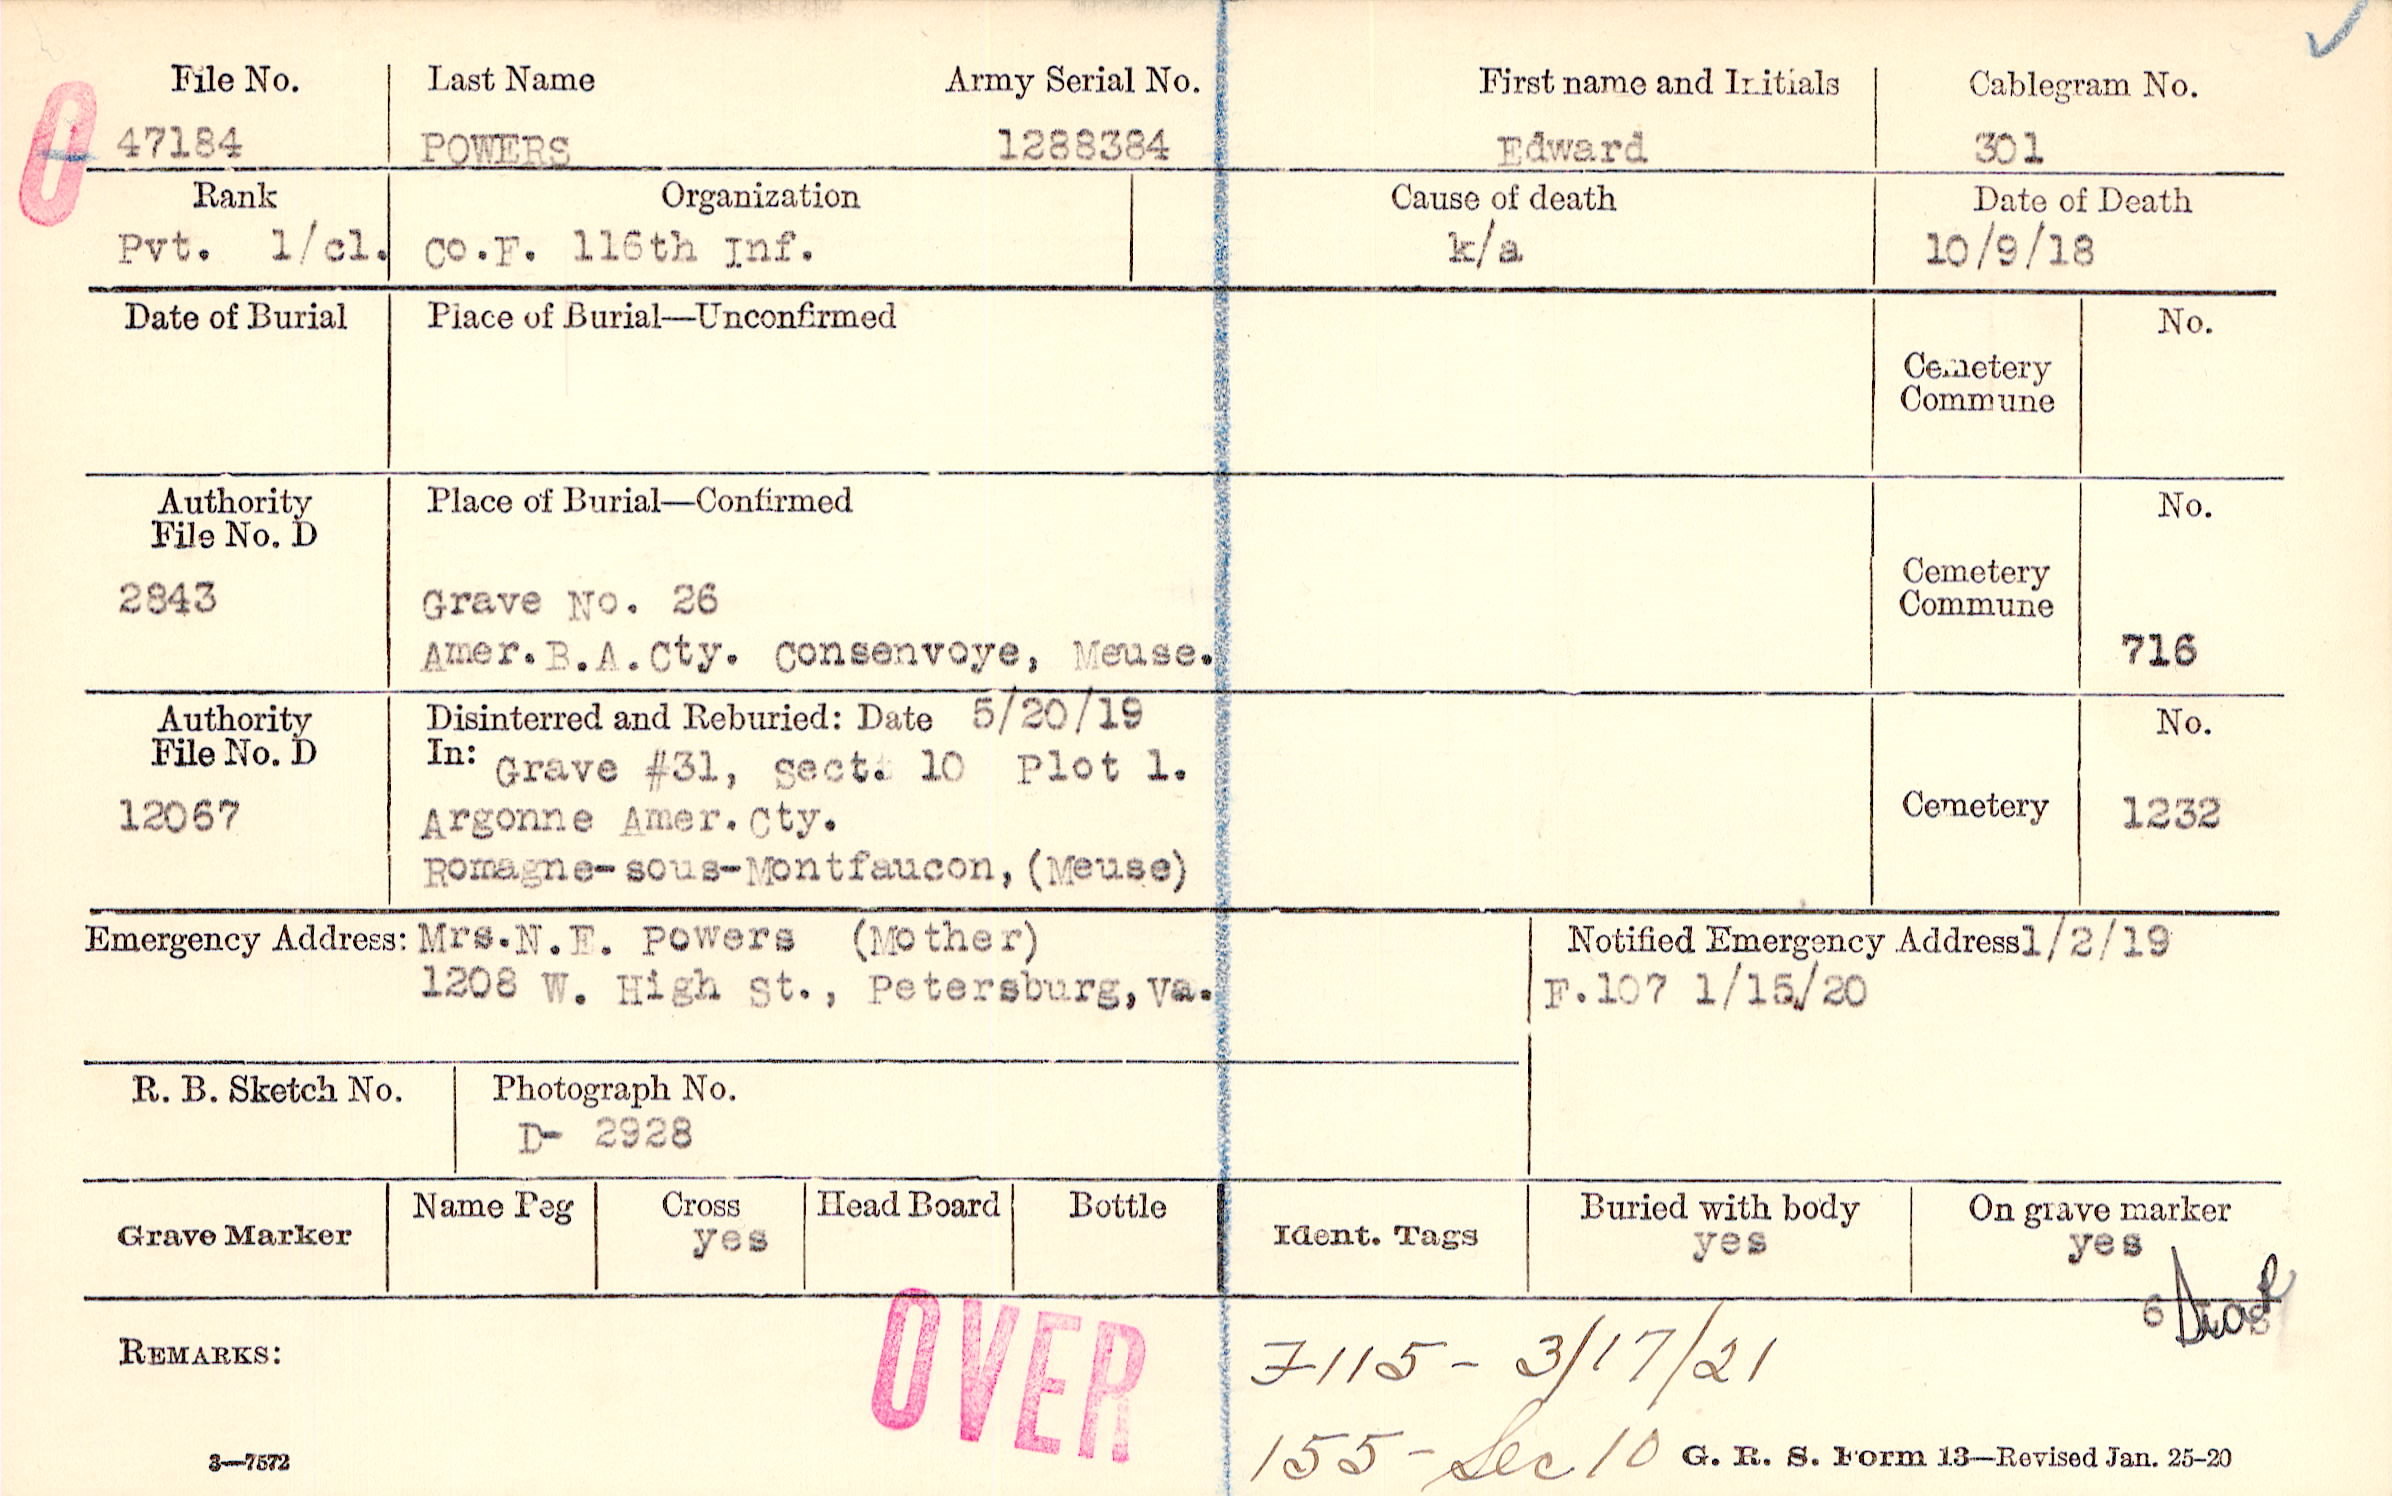 File No. Last Name Army Serial No. First name and Initials Cablegram No.
O 47184 POWERS 1288384 Edward 301
Rank Organization Cause of death Date of Death
Pvt. 1/cl. Co.F. 116th Inf. k/a 10/9/18
Date of Burial Place of Burial—Unconfirmed No.
Cemetery
Commune
Authority Place of Burial—Confirmed No.
File No. D
Cemetery
2843 Grave No. 26 Commune
Amer.B.A.Cty. Consenvoye, Meuse. 716
Authority Disinterred and Reburied: Date 5/20/19 No.
File No. D In: Grave #31, sect. 10 Plot 1.
12067 Argonne Amer.Cty. Cemetery 1232
Romagne-sous-Montfaucon, (Meuse)
Emergency Address: Mrs.N.E. Powers (Mother) Notified Emergency Address 1/2/19
1208 W. High St., Petersburg, Va. F.107 1/15/20
R. B. Sketch No. Photograph No.
D- 2928
Grave Marker Name Peg Cross Head Board Bottle Ident. Tags Buried with body On grave marker
yes yes yes
6
REMARKS: OVER 7115 - 3/17/21
155 - Sec 10
3—7572 G. R. S. Form 13—Revised Jan. 25-20